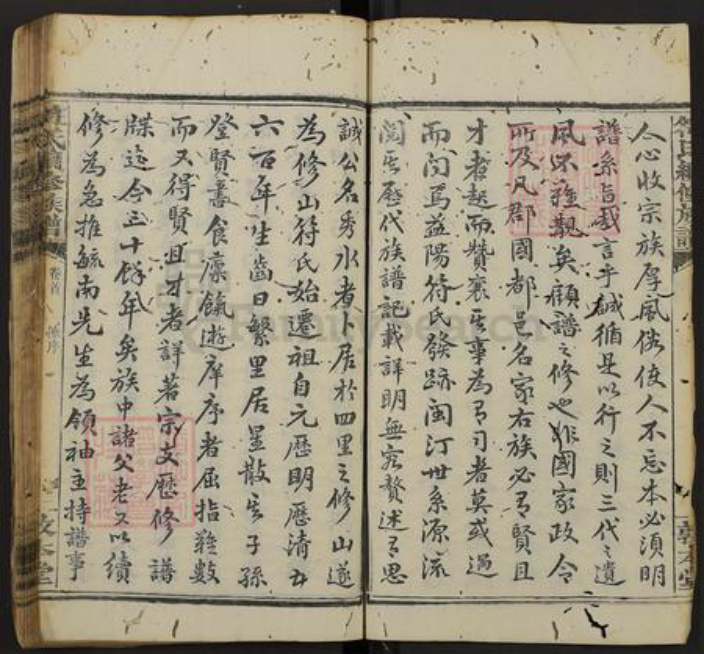 人心收宗族厚風俗使人不忘本必須明
譜系旨哉言乎誠循是以行之則三代之遺
風不難覩矣顧譜之修也非國家政令
所及凡郡國都邑名家右族必有賢且
才者起而贊襄其事為有司者莫或過
而問焉益陽符氏發跡閩汀世系源流
閱其歷代族譜記載詳明無容贅述有思
誠公名秀水者卜居於四里之修山遂
為修山符氏始遷祖自元歷明歷清五
六百年生齒日繁里居星散其子孫
登賢書食廩餼遊庠序者屈指難數
而又得賢且才者詳著宗支歷修譜
牒迄今三十餘年矣族中諸父老又以續
修為急推毓南先生為領袖主持譜事
符氏續修族譜
卷首
序
敦本堂
FamilySearch